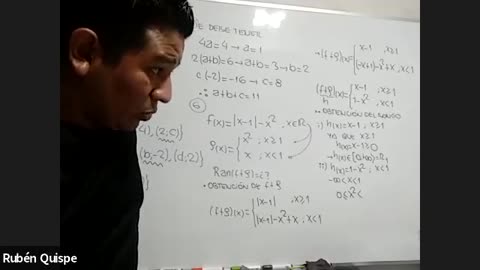 SE DEBE TENER
4a=4→a=1
2(a+b)=6→a+b=3→b=2
c(-2)=-16→c=8
∴ a+b+c=11
4), (2;c)}
(b;-2), (d;2)}
6
f(x)=|x-1|-x², x∈ℝ
g(x)={x² ; x≥1
x ; x<1
Ran(f+g)=¿?
• OBTENCIÓN DE f+g
(f+g)(x)={|x-1| , x≥1
|x-1|-x²+x ; x<1
→(f+g)(x)={x-1 , x≥1
(-x+1)-x²+x ; x<1
(f+g)(x)={x-1 ; x≥1
h
1-x² ; x<1
• OBTENCIÓN DEL RANGO
i) h(x)=x-1 ; x≥1
YA QUE x≥1
h(x)=x-1≥0
→h(x)∈[0;+∞)=R₁
ii) h(x)=1-x² ; x<1
-∞<x<1
0≤x²<
Rubén Quispe